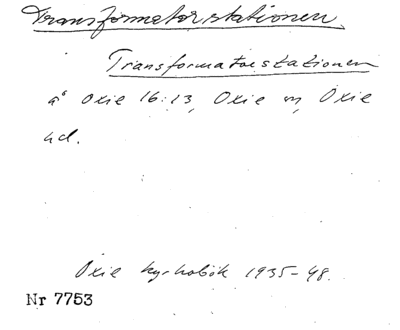 Transformatorstationen
Transformatorstationen
å Oxie 16:13, Oxie sn, Oxie
hd.
Oxie kyrkobok 1935-48.
Nr 7753